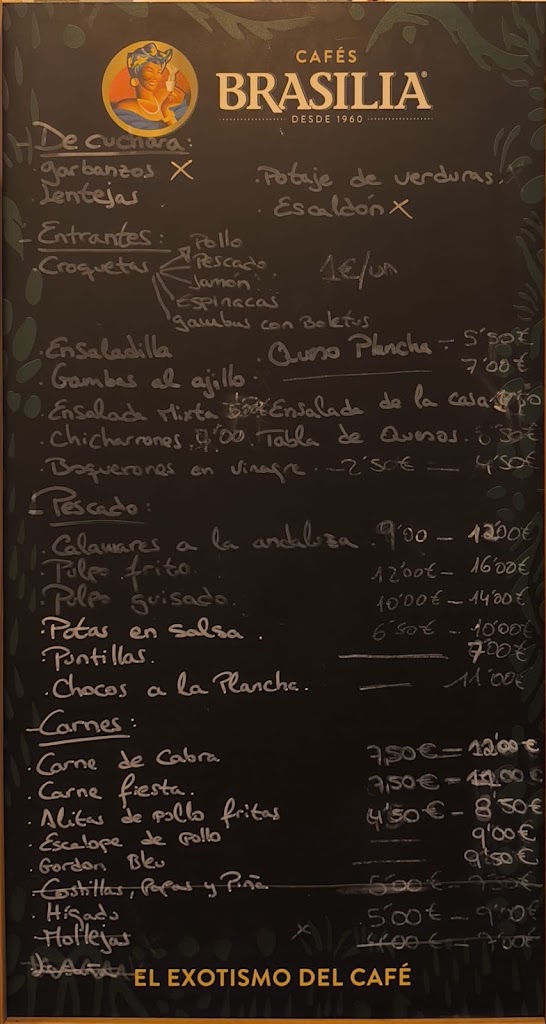 CAFÉS
BRASILIA
DESDE 1960
- De cuchara:
garbanzos X
Lentejas
. Potaje de verduras.
. Escaldón X
- Entrantes:
. Croquetas
Pollo
Pescado
Jamón
Espinacas
gambas con Boletus
1€/un
. Ensaladilla
. Queso Plancha - 5'50€
. Gambas al ajillo. 7'00€
. Ensalada Mixta Ensalada de la casa
. Chicharrones 7'00 . Tabla de Quesos.
. Boquerones en vinagre. - 2'50€ - 4'50€
- Pescado:
. Calamares a la andaluza . 9'00 - 12'00€
. Pulpo frito 12'00€ - 16'00€
. Pulpo guisado. 10'00€ - 14'00€
. Potas en salsa . 6'50€ - 10'00€
. Puntillas. 7'00€
. Chocos a la Plancha. - 11'00€
- Carnes:
. Carne de Cabra 7,50€ - 12'00€
. Carne fiesta. 7,50€ - 11'00€
. Alitas de pollo fritas 4'50€ - 8'50€
. Escalope de pollo 9'00€
. Gordon Bleu 9'50€
. Costillas, Papas y Piña 5'00€ - 9'50€
. Hígado 5'00€ - 9'00€
. Mollejas x 4'00€ - 7'00€
EL EXOTISMO DEL CAFÉ